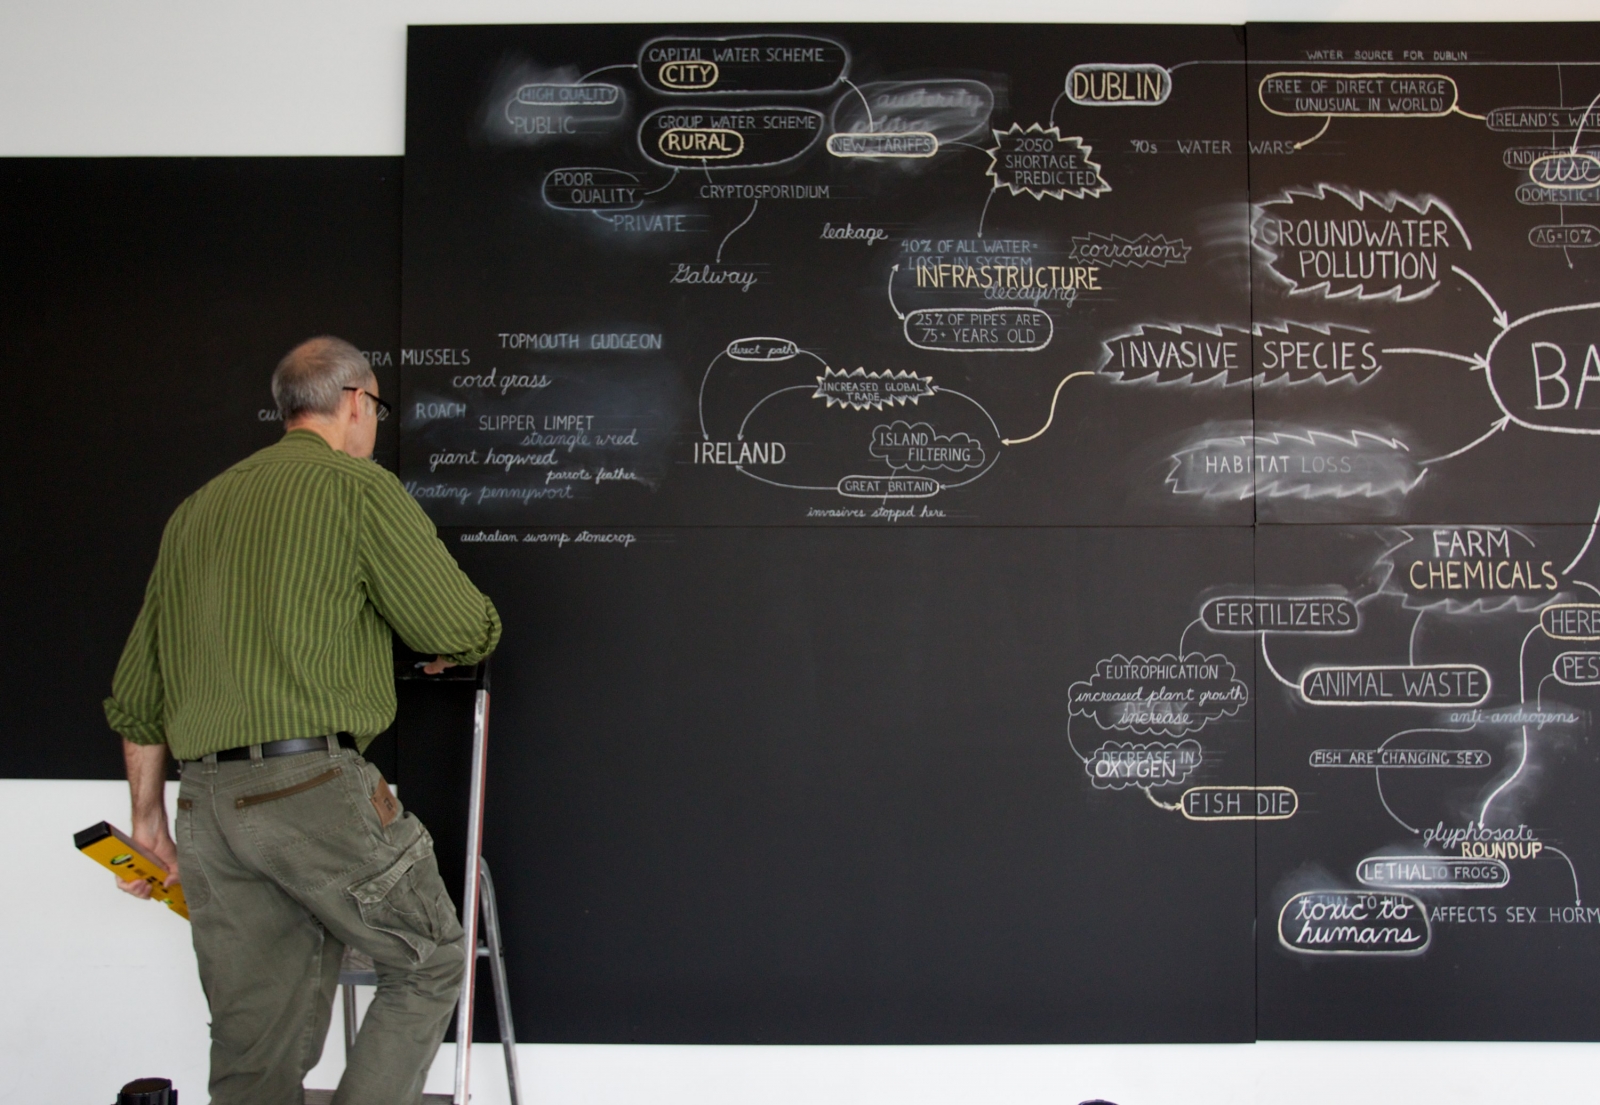 CAPITAL WATER SCHEME
CITY
HIGH QUALITY
PUBLIC
GROUP WATER SCHEME
RURAL
POOR
QUALITY
PRIVATE
CRYPTOSPORIDIUM
Galway
austerity
politics
NEW TARIFFS
DUBLIN
2050
SHORTAGE
PREDICTED
WATER SOURCE FOR DUBLIN
FREE OF DIRECT CHARGE
(UNUSUAL IN WORLD)
'90s WATER WARS
IRELAND'S
use
AG=10%
leakage
40% OF ALL WATER=
LOST IN SYSTEM
INFRASTRUCTURE
decaying
corrosion
25% OF PIPES ARE
75+ YEARS OLD
GROUNDWATER
POLLUTION
INVASIVE SPECIES
HABITAT LOSS
BA
TOPMOUTH GUDGEON
MUSSELS
cord grass
ROACH
SLIPPER LIMPET
strangle weed
giant hogweed
parrots feather
floating pennywort
australian swamp stonecrop
direct path
INCREASED GLOBAL
TRADE
IRELAND
ISLAND
FILTERING
GREAT BRITAIN
invasives stoppid here
FARM
CHEMICALS
FERTILIZERS
HERB
PES
ANIMAL WASTE
EUTROPHICATION
increased plant growth
DECAY
increase
DECREASE IN
OXYGEN
FISH DIE
anti-androgens
FISH ARE CHANGING SEX
glyphosate
ROUNDUP
LETHAL TO FROGS
toxic to
humans
AFFECTS SEX HORM